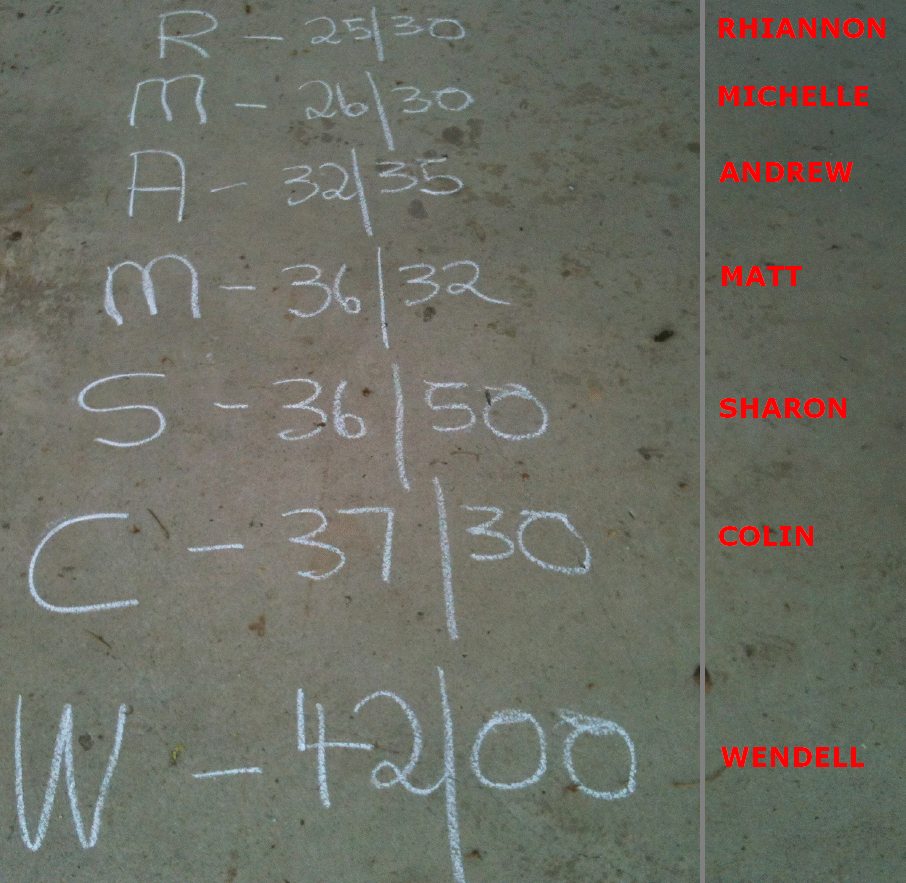 R - 25|30 RHIANNON
M - 26|30 MICHELLE
A - 32|35 ANDREW
M - 36|32 MATT
S - 36|50 SHARON
C - 37|30 COLIN
W - 42|00 WENDELL